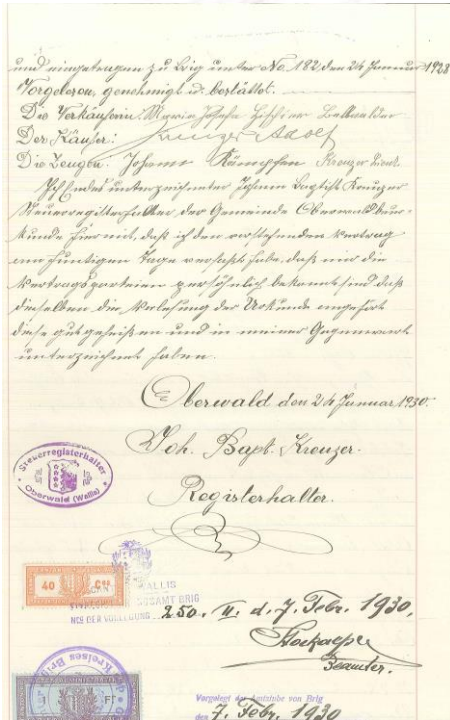 und eingetragen zu Brig unter No 182 den 24 Januar 1928
Vorgelesen, genehmigt u. bestättet.
Die Verkäuferin: Maria Josefa
Der Käufer: Kreuzer Adolf
Die Zeugen: Johann Kämpfen Kreuzer
Ich Endesunterzeichneter Johann Baptist Kreuzer
Steuerregisterhalter der Gemeinde Oberwald beur-
kunde hiermit, daß ich den vorstehenden Vertrag
am heutigen Tage verfaßt habe, daß mir die
Vertragsparteien persönlich bekannt sind daß
dieselben die Verlesung der Urkunde angehört
diese gutgeheißen und in meiner Gegenwart
unterzeichnet haben.
Oberwald den 24 Januar 1930.
Joh. Bapt. Kreuzer.
Registerhalter.
Steuerregisterhalter
Oberwald (Wallis)
40 Cts
WALLIS
AMT BRIG
NO& DER VORLEGUNG 250. II. d. 7. Febr. 1930.
Beamter.
Kreises Brig
Fr
Vorgelegt der Amtstube von Brig
den 7. Febr. 1930